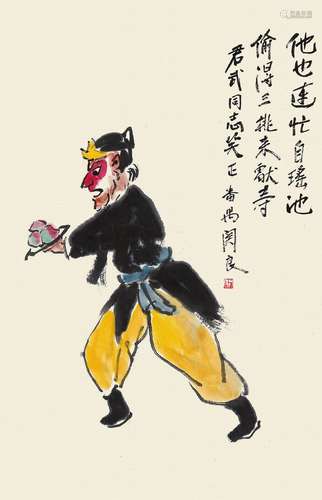 他也连忙自瑶池
偷得三桃来献寿
君武同志笑正 番禺 关良